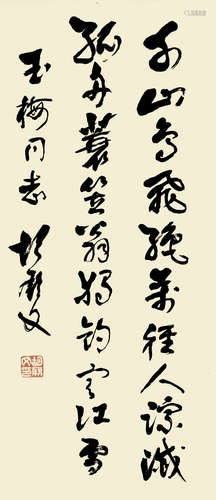 千山鸟飞绝万径人踪灭
孤舟蓑笠翁独钓寒江雪
玉梅同志